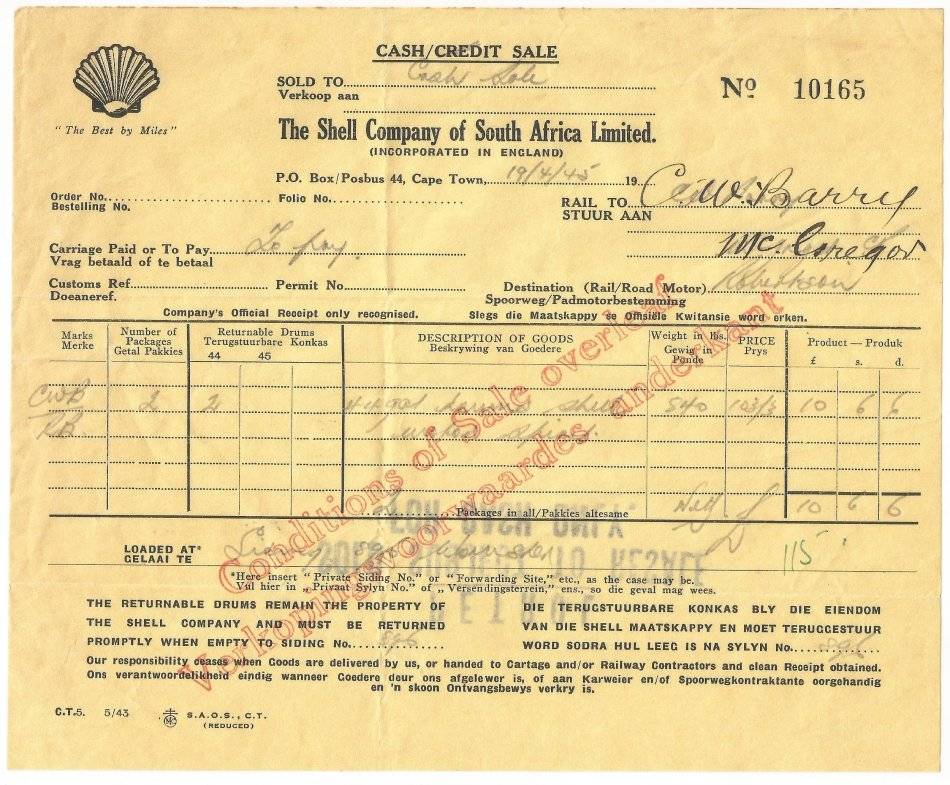 CASH/CREDIT SALE
SOLD TO Cash Sale
Verkoop aan
"The Best by Miles"
Nº 10165
The Shell Company of South Africa Limited.
(INCORPORATED IN ENGLAND)
P.O. Box/Posbus 44, Cape Town, 19/4/45 19
Order No.
Bestelling No.
Folio No.
RAIL TO C.W. Barry
STUUR AAN
McGregor
Carriage Paid or To Pay To pay.
Vrag betaald of te betaal
Customs Ref.
Doeaneref.
Permit No.
Destination (Rail/Road Motor) Robertson
Spoorweg/Padmotorbestemming
Company's Official Receipt only recognised. Slegs die Maatskappy se Offisiële Kwitansie word erken.
Marks
Merke
Number of Packages
Getal Pakkies
Returnable Drums
Terugstuurbare Konkas
44 45
DESCRIPTION OF GOODS
Beskrywing van Goedere
Weight in lbs.
Gewig in Ponde
PRICE
Prys
Product — Produk
£ s. d.
CWB 2 2 540 103/3 10 6 6
RB
Packages in all/Pakkies altesame Nett £ 10 6 6
Conditions of Sale overleaf
Verkopingsvoorwaardes anderkant
LOADED AT*
GELAAI TE
115
*Here insert "Private Siding No." or "Forwarding Site," etc., as the case may be.
Vul hier in „Privaat Sylyn No." of „Versendingsterrein," ens., so die geval mag wees.
THE RETURNABLE DRUMS REMAIN THE PROPERTY OF
THE SHELL COMPANY AND MUST BE RETURNED
PROMPTLY WHEN EMPTY TO SIDING No.
DIE TERUGSTUURBARE KONKAS BLY DIE EIENDOM
VAN DIE SHELL MAATSKAPPY EN MOET TERUGGESTUUR
WORD SODRA HUL LEEG IS NA SYLYN No.
Our responsibility ceases when Goods are delivered by us, or handed to Cartage and/or Railway Contractors and clean Receipt obtained.
Ons verantwoordelikheid eindig wanneer Goedere deur ons afgelewer is, of aan Karweier en/of Spoorwegkontraktante oorgehandig
en 'n skoon Ontvangsbewys verkry is.
C.T.5. 5/43 S.A.O.S., C.T.
(REDUCED)